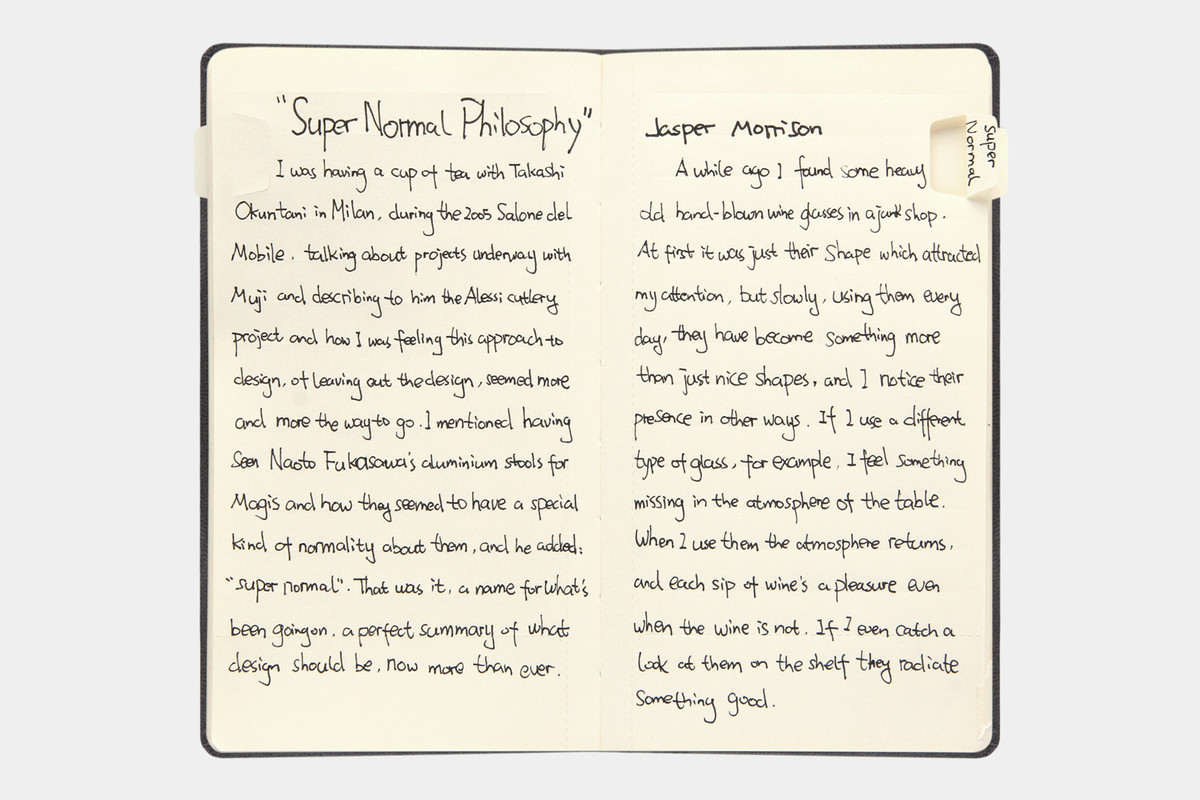 "Super Normal Philosophy"
I was having a cup of tea with Takashi
Okuntani in Milan, during the 2005 Salone del
Mobile. talking about projects underway with
Muji and describing to him the Alessi cutlery
project and how I was feeling this approach to
design, of leaving out the design, seemed more
and more the way to go. I mentioned having
Seen Naoto Fukasawa's aluminium stools for
Magis and how they seemed to have a special
kind of normality about them, and he added:
"super normal". That was it, a name for what's
been going on. a perfect summary of what
design should be, now more than ever.
Jasper Morrison
A while ago I found some heavy
old hand-blown wine glasses in a junk shop.
At first it was just their Shape which attracted
my attention, but slowly, using them every
day, they have become something more
than just nice shapes, and I notice their
presence in other ways. If I use a different
type of glass, for example, I feel something
missing in the atmosphere of the table.
When I use them the atmosphere returns,
and each sip of wine's a pleasure even
when the wine is not. If I even catch a
look at them on the shelf they radiate
Something good.
Super
Normal